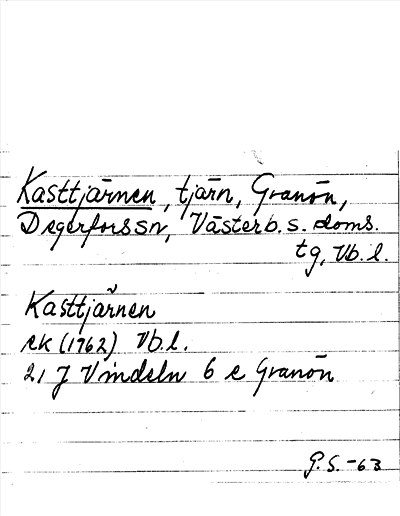 Kasttjärnen, tjärn, Granön,
Degerforssn, Västerb. s. doms.
tg, Vb. l.
Kasttjärnen
ek (1762) Vb.l.
21 J Vindeln 6 e Granön
G. S. -63